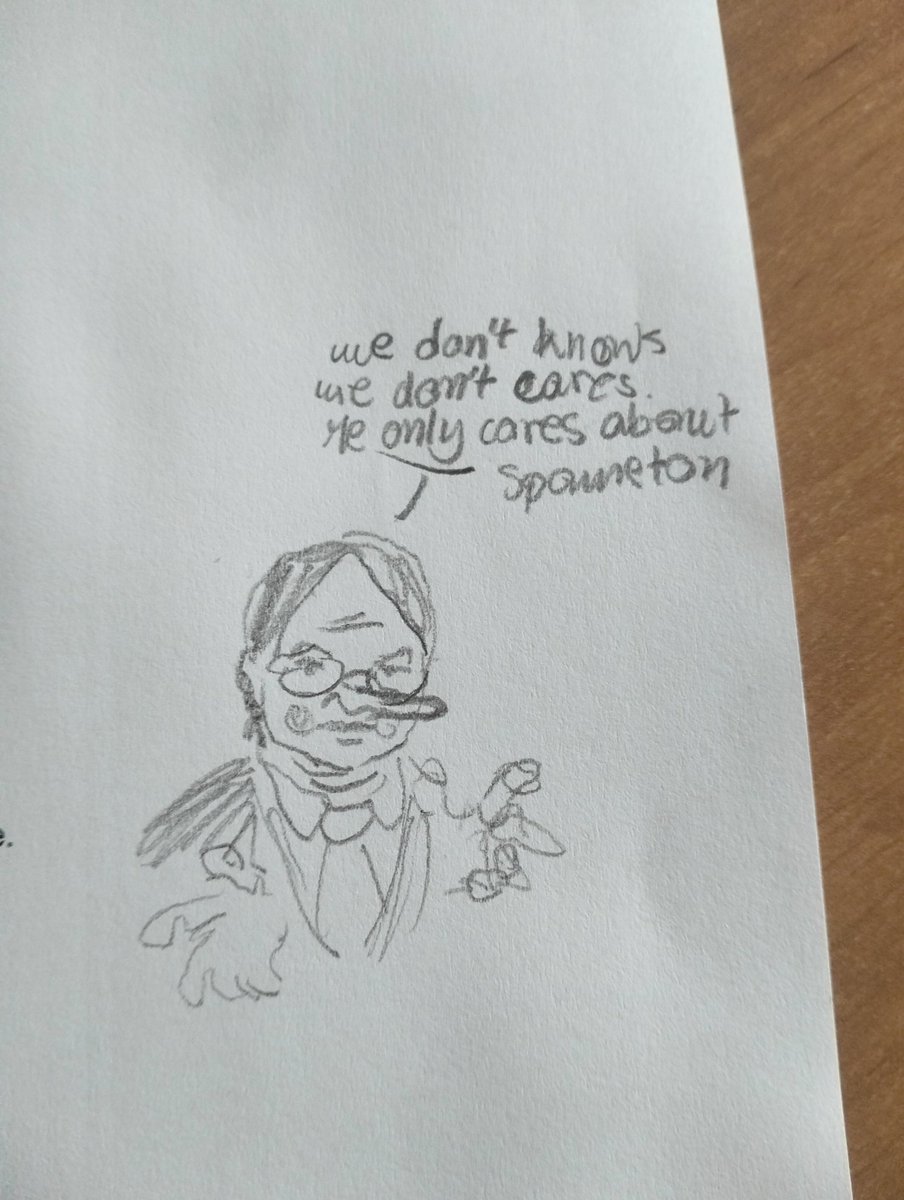 we don't knows
we don't cares.
He only cares about
Spamneton
e.